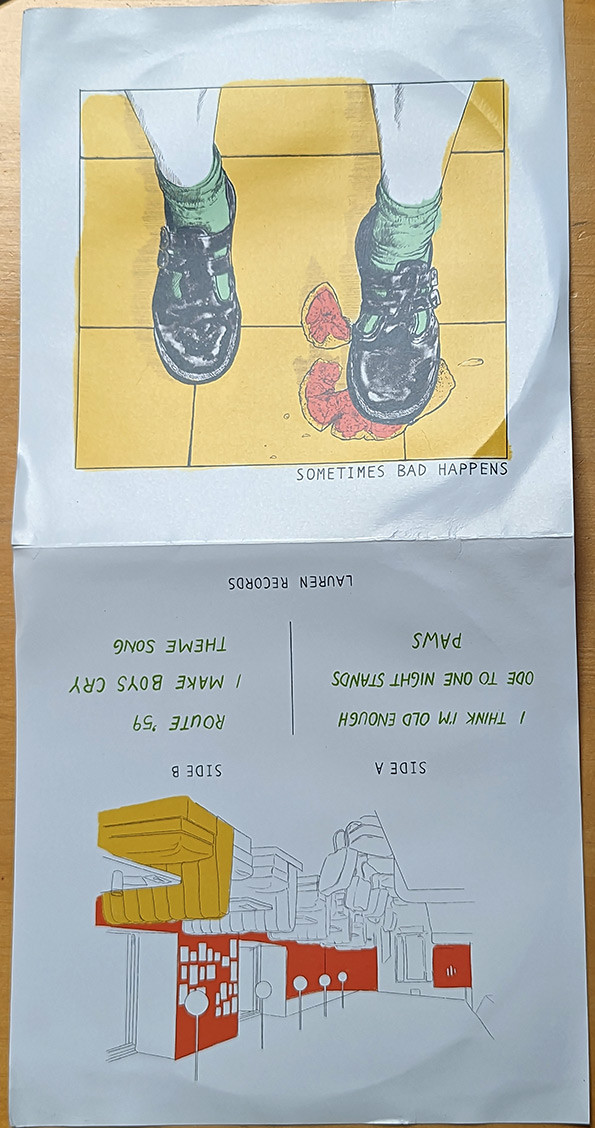 SOMETIMES BAD HAPPENS
SIDE A
I THINK I'M OLD ENOUGH
ODE TO ONE NIGHT STANDS
PAWS
SIDE B
ROUTE '59
I MAKE BOYS CRY
THEME SONG
LAUREN RECORDS